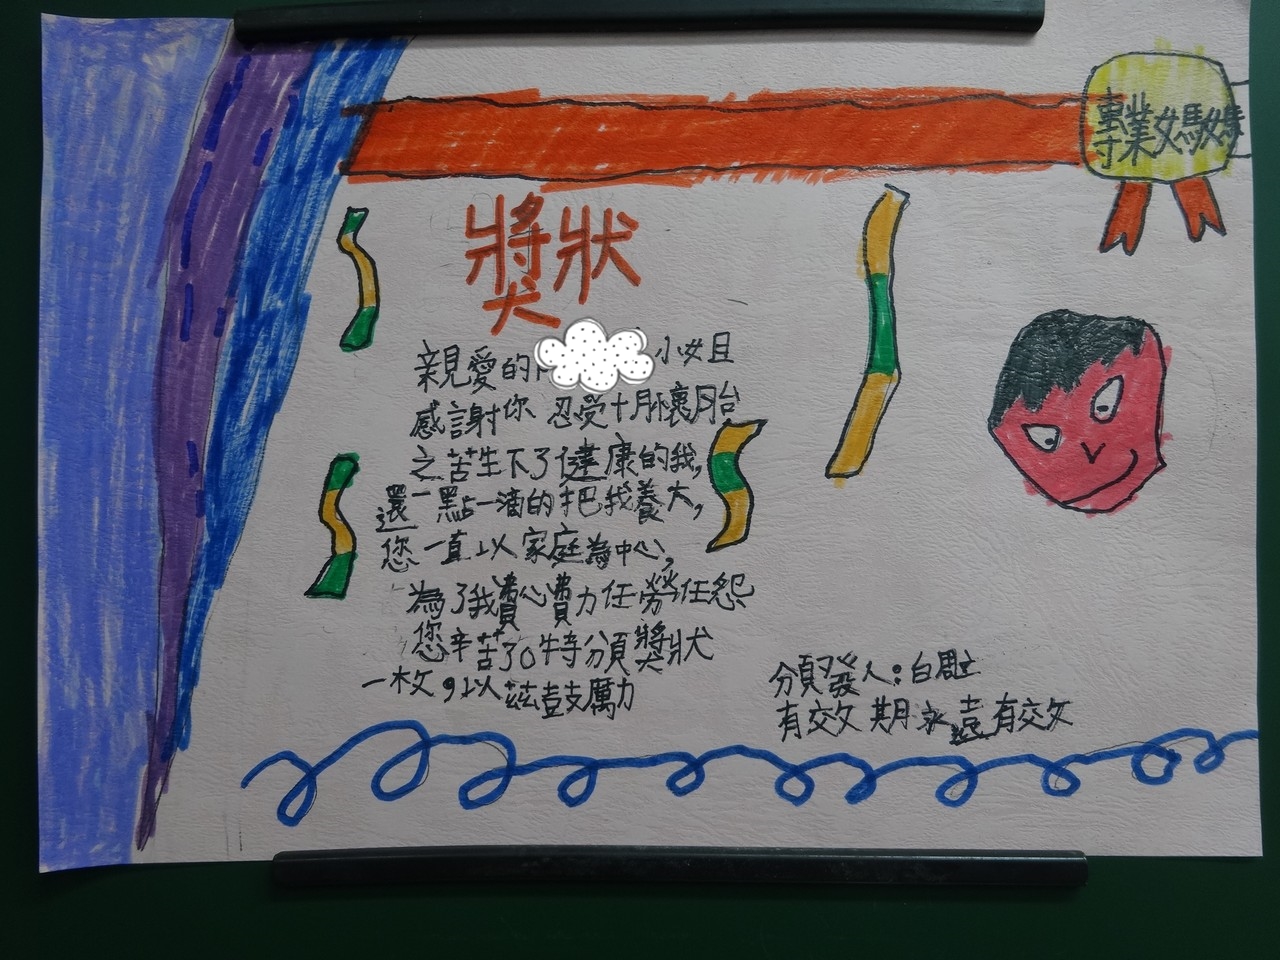 專業媽媽
獎狀
親愛的 小姐
感謝你 忍受十月懷胎
之苦生下了健康的我,
還一點一滴的把我養大,
您一直以家庭為中心,
為了我費心費力任勞任怨
您辛苦了。特頒獎狀
一枚,以茲鼓勵
頒發人:白
有效期永遠有效